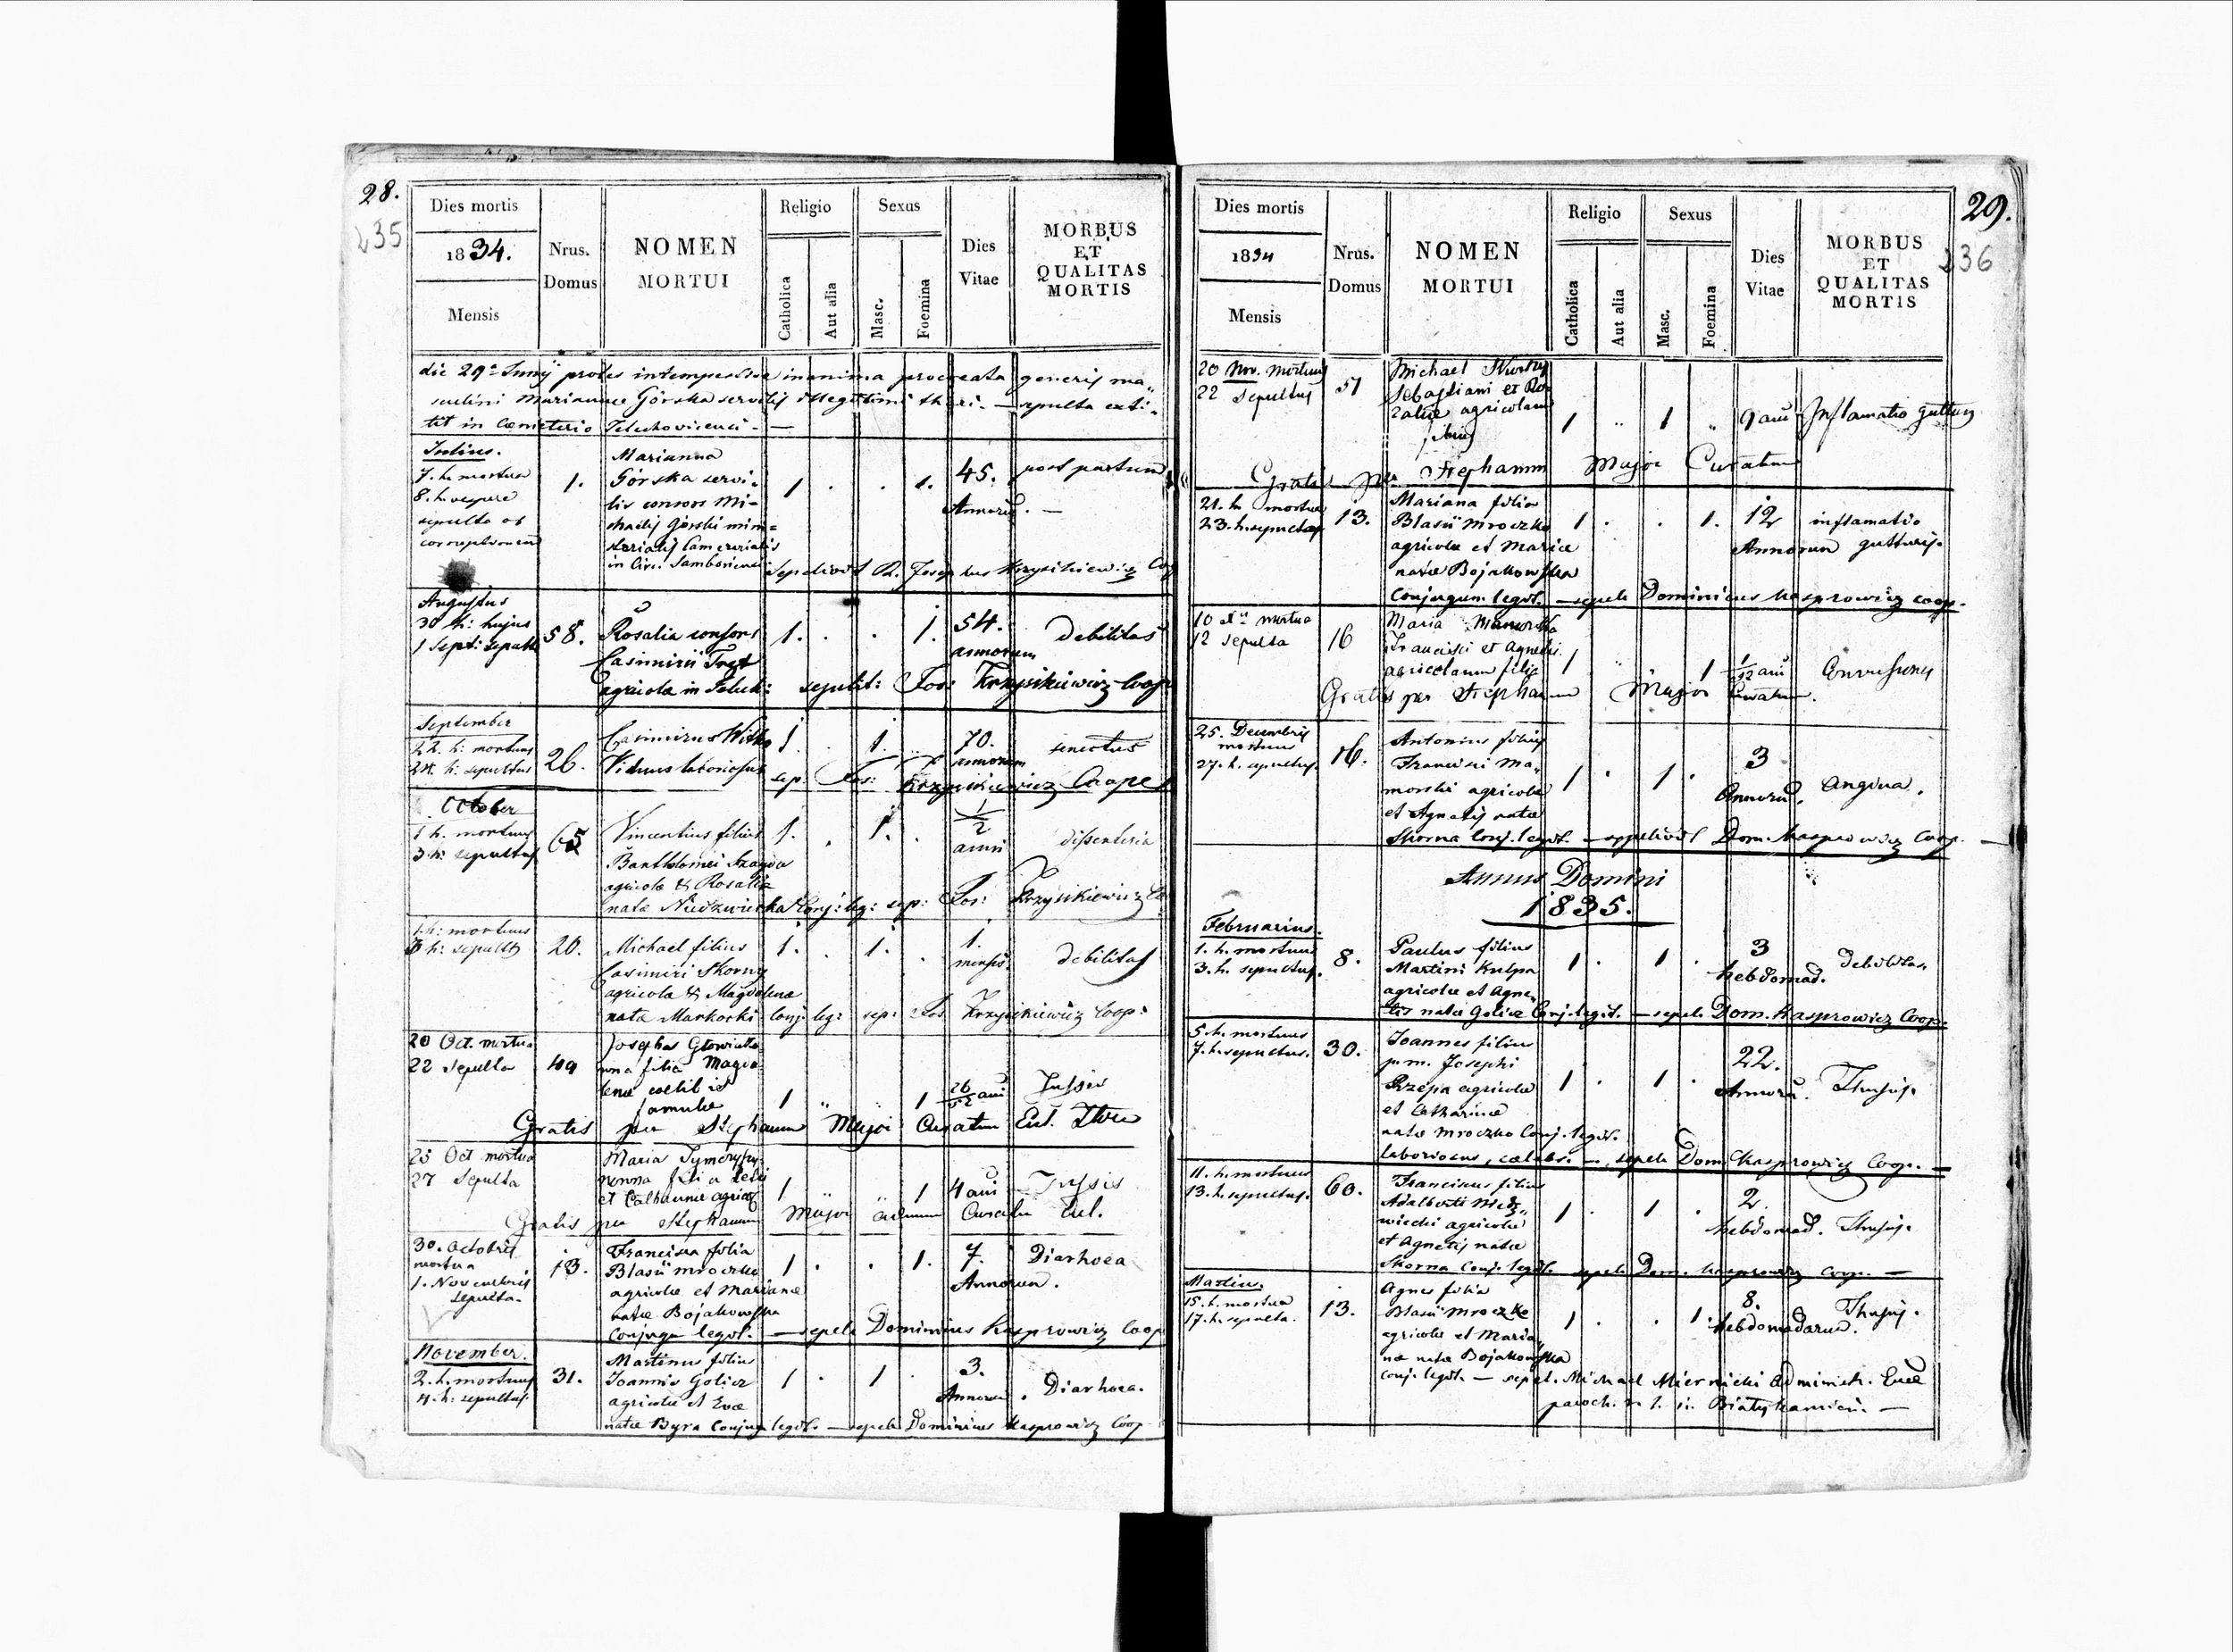 28.
235
Dies mortis
1834.
Mensis
Nrus.
Domus
NOMEN
MORTUI
Religio
Catholica
Aut alia
Sexus
Masc.
Foemina
Dies
Vitae
MORBUS
ET
QUALITAS
MORTIS
die 29a Junij proles intempestive inanima procreata generis ma„
sculini Mariannae Górska servilis illegitimi thori. — sepulta exti„
tit in Cæmeterio
Julius.
7. h. mortua
8. h. vespere
sepulta ob
1.
Marianna
Górska servi„
lis consors Mi„
chaelis Górski
Cameralis
in Circ. Samboriensi
1 . . 1.
45.
Annorum. —
post partum
Sepelivit R. Josephus Krzysikiewicz Coop
Augustus
30 h: hujus
1 Sept: sepulta
58.
Rosalia consors
Casimirii
agricolæ in
1. . . 1.
54.
annorum
debilitas
sepelit: Jos: Krzysikiewicz Coop
September
22. h: mortuus
24. h: sepultus
26.
Casimirus Witko
Viduus laboriosus
1. 1. ..
70.
annorum
senectus
sep: Jos: Krzysikiewicz Coope
October
1 h. mortuus
3 h: sepultus
65
Vincentius filius
Bartholomei
agricolæ & Rosalia
nata Niedzwiecka Conj: leg: sep: Jos: Krzysikiewicz Co
1. . 1. .
1/2
anni
dissenteria
1. h: mortuus
3 h: sepultus
20.
Michael filius
Casimiri Skorny
agricola & Magdalena
nata Markocki Conj: leg: sep: Jos Krzysikiewicz Coop:
1. . 1. .
1.
mensis
debilitas
20 Oct. mortua
22 Sepulta
49
Josepha
filia Magda
lenæ
famulæ
1 „ „ 1
26/52 ani
Tussis
Gratis per Stephanum Major Curatum
25 Oct mortua
27 Sepulta
Maria
filia
et Catharinae agricol
1 „ „ 1
4 ani
Tussis
Gratis per Stephanum Major Curatum
30. Octobris
mortua
1. Novembris
sepulta.
13.
Francisca filia
Blasii Mroczko
agricolæ et Mariannæ
natæ Bojakowska
Conjugu legit. — sepel. Dominicus Kasprowicz Coop
1 . . 1.
7.
Annorum.
Diarhoea
November.
2. h. mortuus
4. h: sepultus.
31.
Martinus filius
Joannis Golicz
agricolæ et Evæ
natæ Byra Conjug legit. — sepel. Dominicus Kasprowicz Coop
1 . 1 .
3.
Annorum.
Diarhoea.
29.
236
Dies mortis
1834
Mensis
Nrus.
Domus
NOMEN
MORTUI
Religio
Catholica
Aut alia
Sexus
Masc.
Foemina
Dies
Vitae
MORBUS
ET
QUALITAS
MORTIS
20 Nov. mortuus
22 Sepultus
51
Michael Skorny
Sebastiani et Ro
zaliæ agricolarum
filius
1 „ 1 „
9 ani
Inflamatio gutturis
Gratis per Stephanum Major Curatum
21. h. mortua
23. h. sepulta
13.
Mariana filia
Blasii Mroczko
agricolæ et Mariæ
natæ Bojakowska
Conjugum legit. — sepel. Dominicus Kasprowicz Coop.
1 . . 1.
12
Annorum
inflamatio
gutturis.
10 Xbr mortua
12 Sepulta
16
Maria
Francisci et Agnetis
agricolarum filia
1 „ „ 1
1/12 ani
Convulsiones
Gratis per Stephanum Major Curatum.
25. Decembris
mortuus
27. h. sepultus.
16.
Antonius filius
Francisci Ma„
morski agricolæ
et Agnetis natæ
Skorna Conj. legit. — sepelivit Dom. Kasprowicz Coop.
1 . 1 .
3
Annorum.
Angina.
Annus Domini
1835.
Februarius.
1. h. mortuus
3. h. sepultus.
8.
Paulus filius
Martini Kulpa
agricolæ et Agne„
tis natæ Golicz Conj. legit. — sepel. Dom. Kasprowicz Coop.
1 . 1 .
3
hebdomad.
debilitas.
5. h. mortuus
7. h. sepultus.
30.
Joannes filius
p. m. Josephi
Rzepa agricolæ
et Catharinæ
natæ Mroczko Conj. legit.
laboriosus, cælebs. — sepel. Dom. Kasprowicz Coop. —
1 . 1 .
22.
Annorum.
Thusis.
11. h. mortuus
13. h. sepultus.
60.
Franciscus filius
Adalberti Niedz„
wiecki agricolæ
et Agnetis natæ
Skorna Conj. legit. sepel. Dom. Kasprowicz Coop. —
1 . 1 .
2.
hebdomad.
Thusis.
Martius.
15. h. mortua
17. h. sepulta.
13.
Agnes filia
Blasii Mroczko
agricolæ et Maria„
næ natæ Bojakowska
conj. legit. — sepel. Michael Miernicki Administr. Eccl
paroch. r. l. in Białykamien. —
1 . . 1.
8.
hebdomadarum.
Thusis.